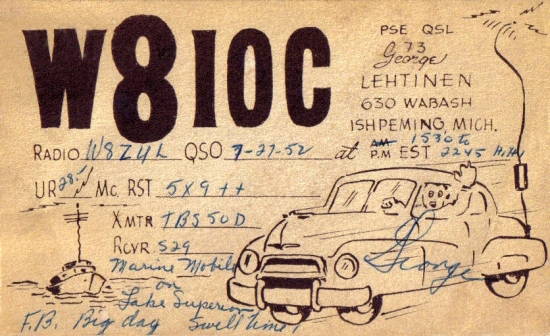 W8IOC
PSE QSL
73
George
LEHTINEN
630 WABASH
ISHPEMING, MICH.
RADIO W8ZYL QSO 7-27-52 at AM P.M EST 1530 to 2245 Hi Hi
UR 28 Mc. RST 5X9++
XMTR TBS50D
RCVR S29
Marine Mobile
on
Lake Superior
F.B. Big day Swell time!
George